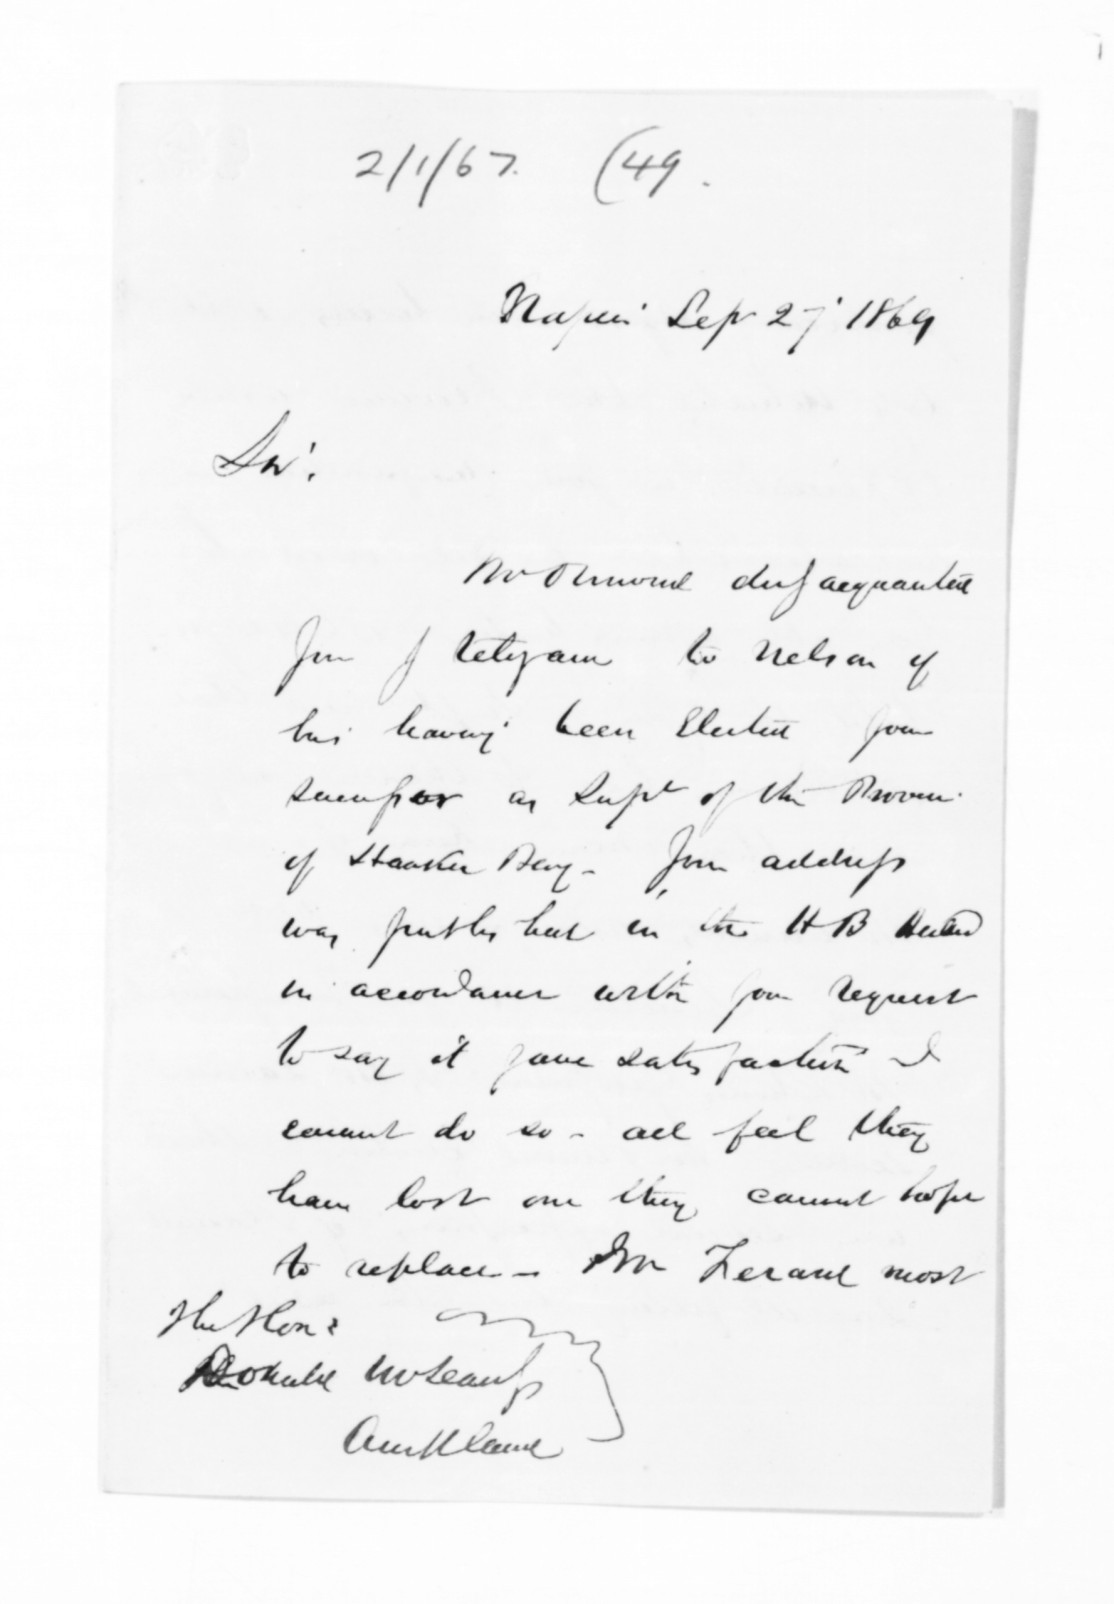 2/1/67. (49.
Napier Sep 27 1869
Sir.
Mr Ormond duly acquainted
you by telegram to Nelson of
his having been Elected your
successor as Supt of the Provin
of Hawkes Bay - Your address
was published in the H B Herald
in accordance with your request
to say it gave satisfaction I
cannot do so - all feel they
have lost one they cannot hope
to replace - Mr most
The Hon:
Donald McLean
Auckland